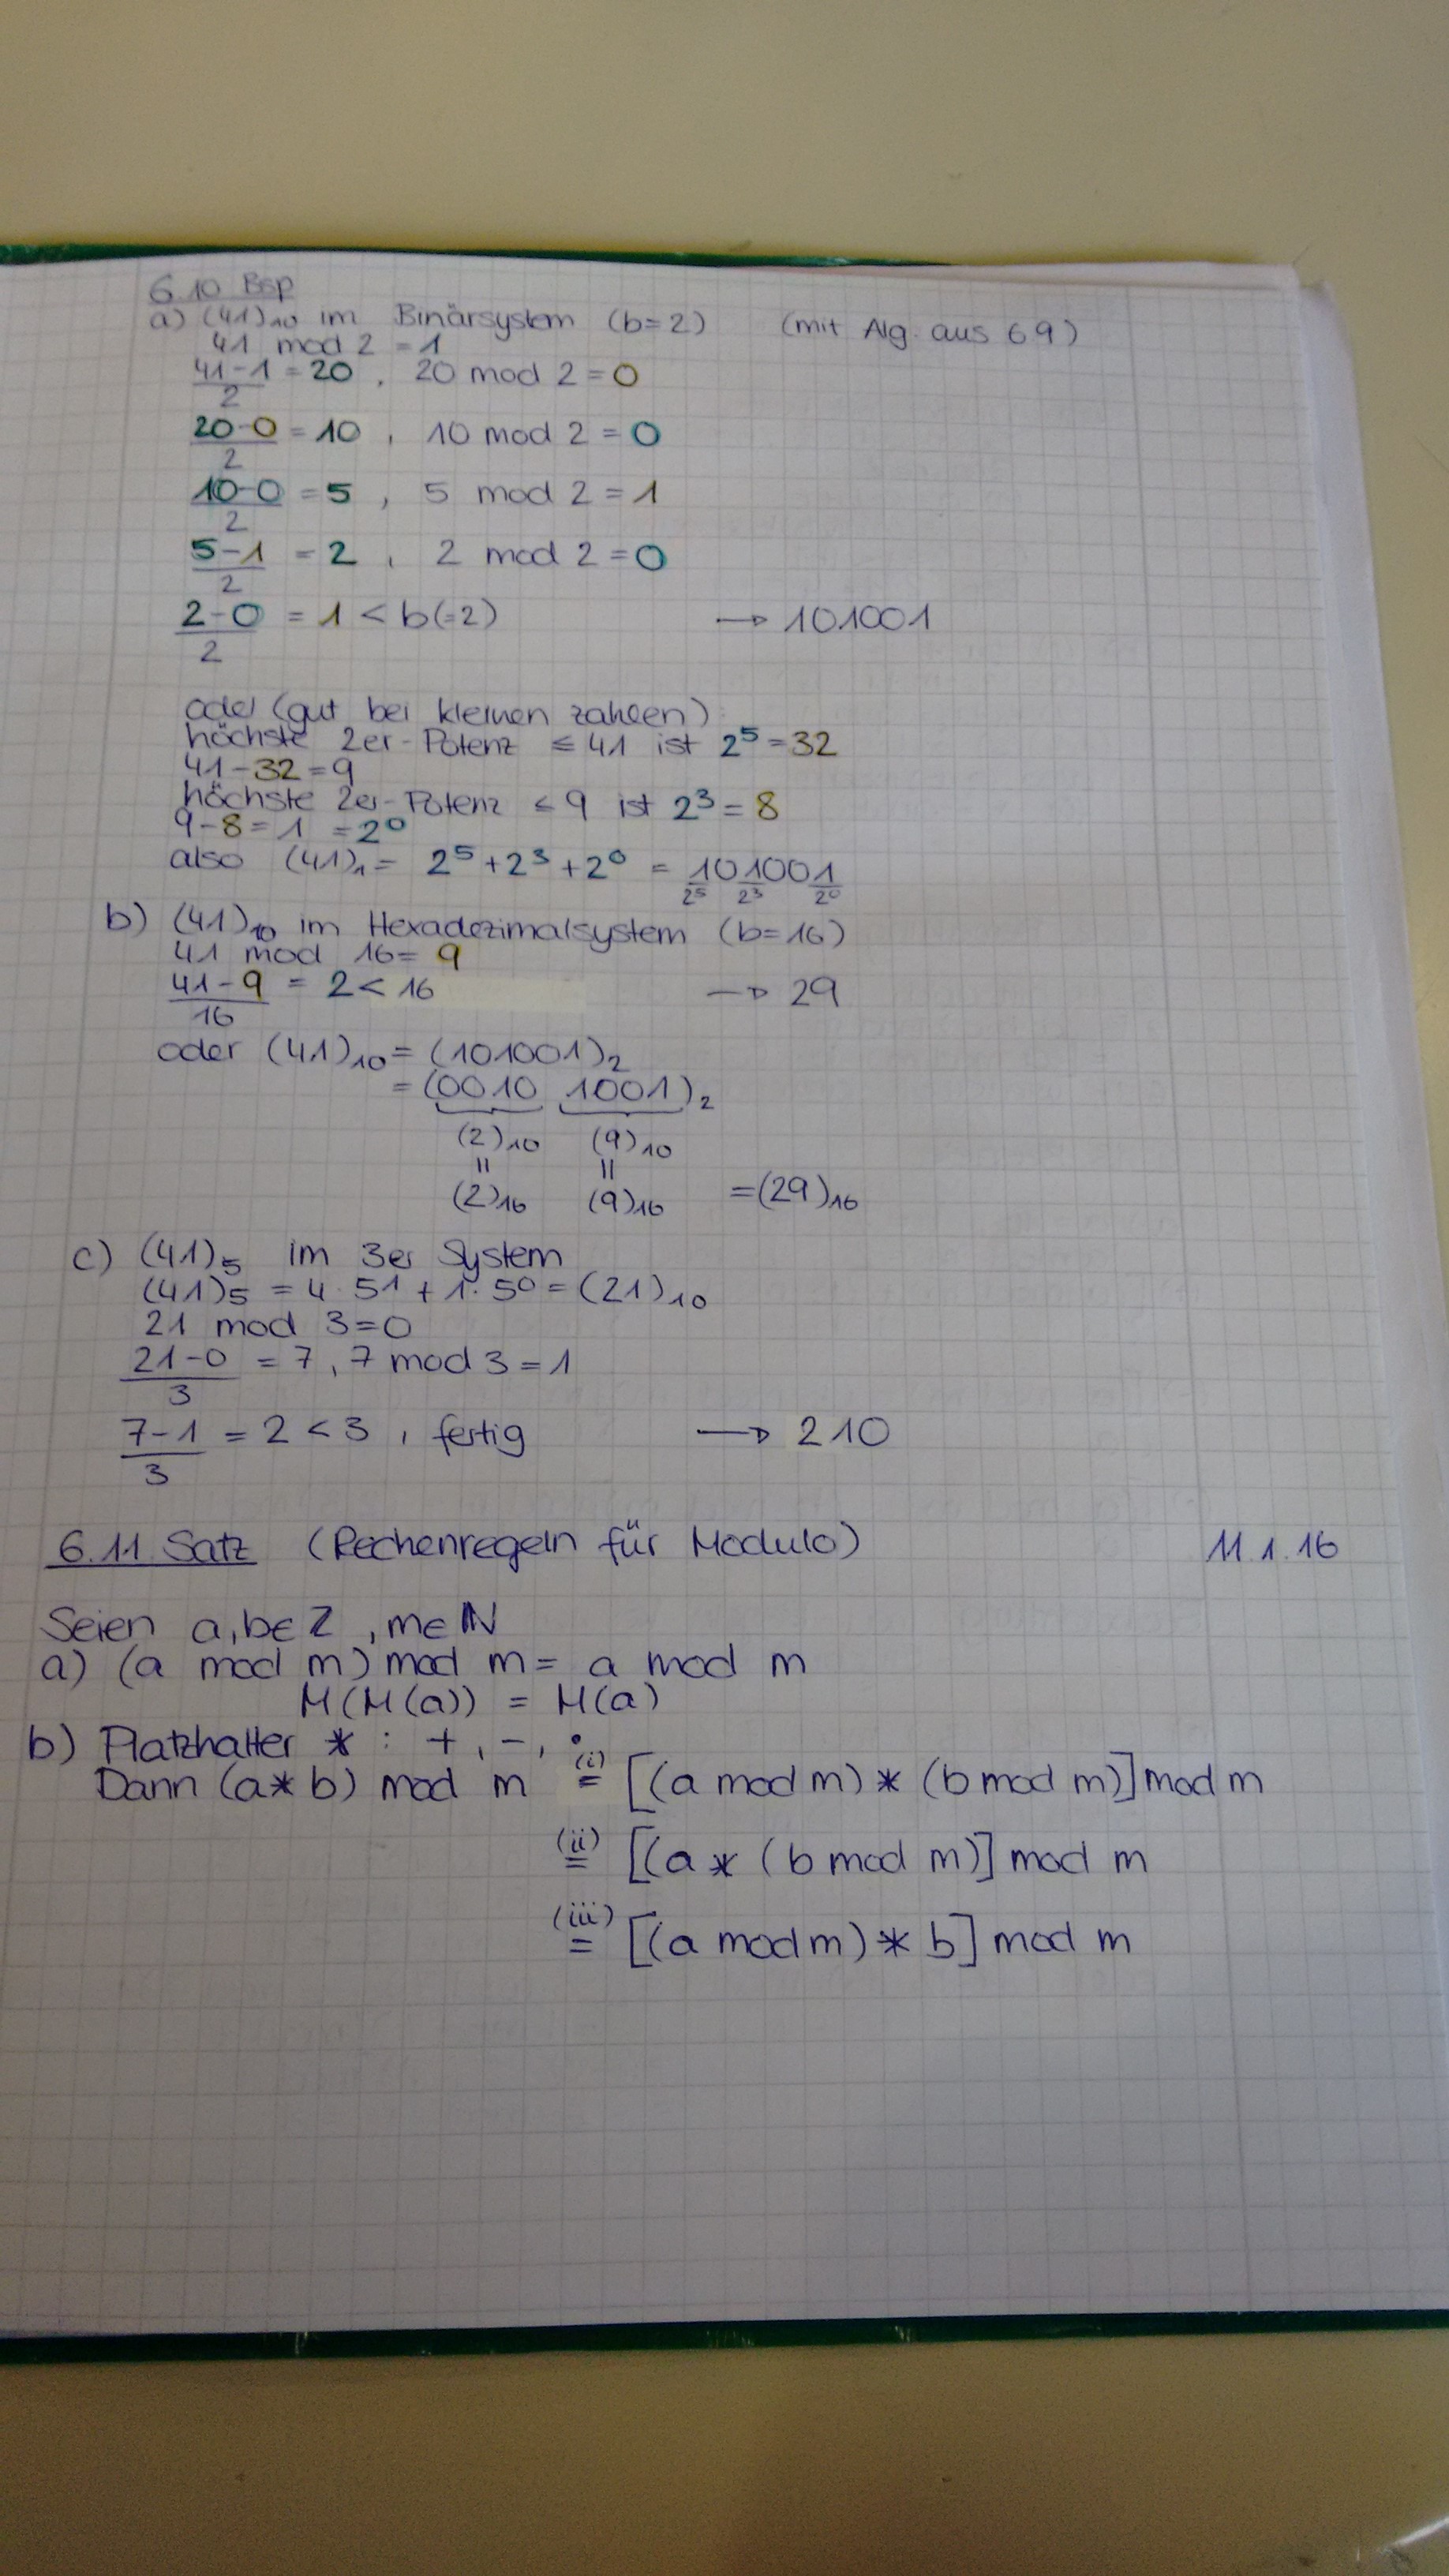 6.10 Bsp
a) (41)₁₀ im Binärsystem (b=2) (mit Alg. aus 6.9)
41 mod 2 = 1
(41-1)/2 = 20 , 20 mod 2 = 0
(20-0)/2 = 10 , 10 mod 2 = 0
(10-0)/2 = 5 , 5 mod 2 = 1
(5-1)/2 = 2 , 2 mod 2 = 0
(2-0)/2 = 1 < b(=2) → 101001
oder (gut bei kleinen zahlen)
höchste 2er-Potenz ≤ 41 ist 2⁵ = 32
41-32 = 9
höchste 2er-Potenz ≤ 9 ist 2³ = 8
9-8 = 1 = 2⁰
also (41)₁ = 2⁵ + 2³ + 2⁰ = 101001
2⁵ 2³ 2⁰
b) (41)₁₀ im Hexadezimalsystem (b=16)
41 mod 16 = 9
(41-9)/16 = 2 < 16 → 29
oder (41)₁₀ = (101001)₂
= (0010 1001)₂
(2)₁₀ (9)₁₀
= =
(2)₁₆ (9)₁₆ = (29)₁₆
c) (41)₅ im 3er System
(41)₅ = 4·5¹ + 1·5⁰ = (21)₁₀
21 mod 3 = 0
(21-0)/3 = 7 , 7 mod 3 = 1
(7-1)/3 = 2 < 3 , fertig → 210
6.11 Satz (Rechenregeln für Modulo) 11.1.16
Seien a,b ∈ Z , m ∈ ℕ
a) (a mod m) mod m = a mod m
M(M(a)) = M(a)
b) Platzhalter * : + , - , ·
Dann (a * b) mod m (i)= [(a mod m) * (b mod m)] mod m
(ii)= [(a * (b mod m)] mod m
(iii)= [(a mod m) * b] mod m